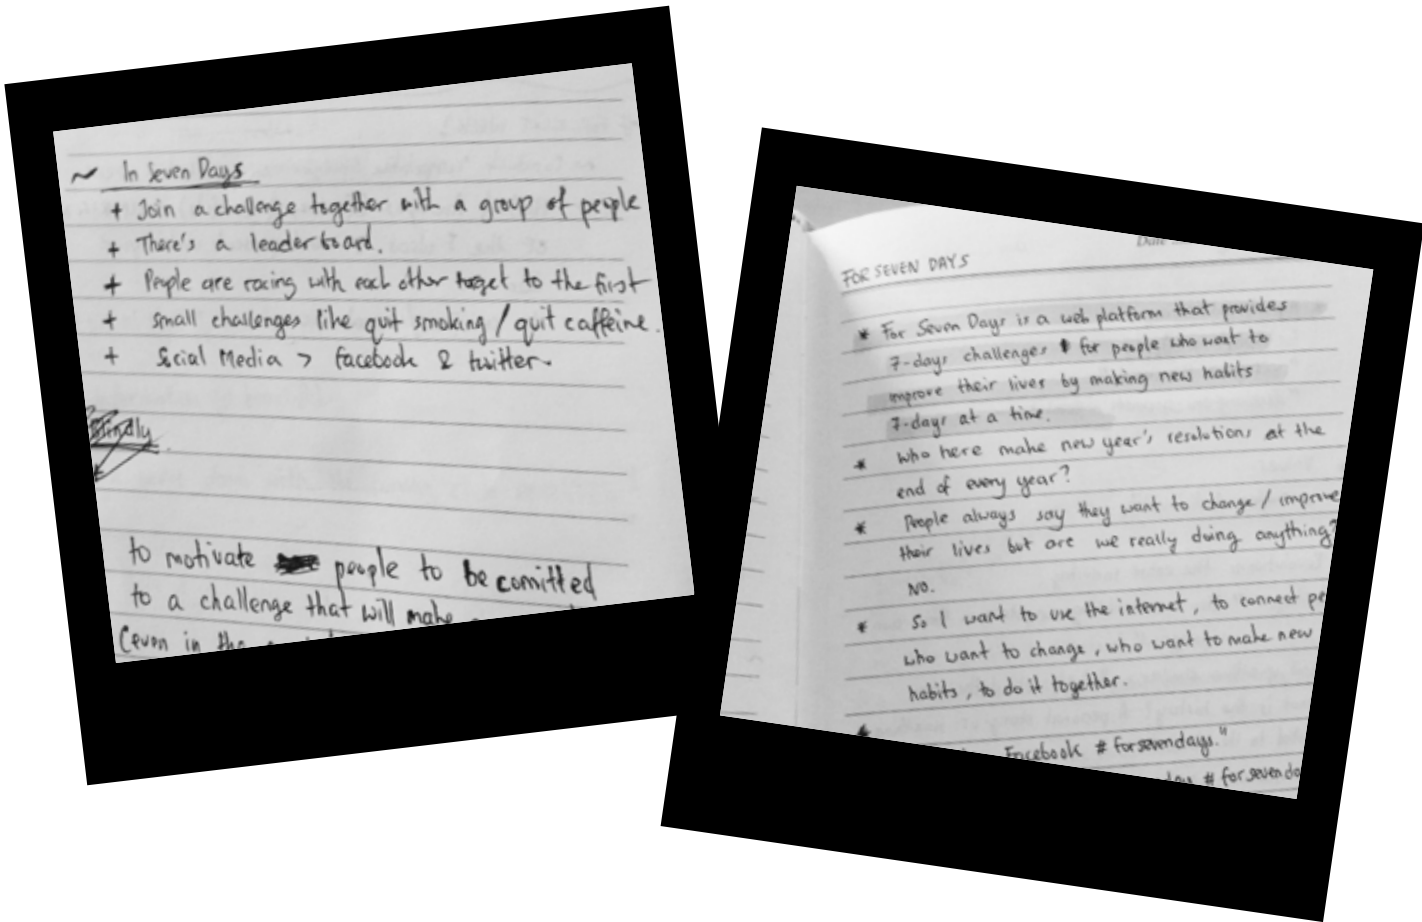 ~ In Seven Days
+ Join a challenge together with a group of people
+ There's a leaderboard.
+ People are racing with each other to get to the first
+ small challenges like quit smoking / quit caffeine.
+ Social Media > facebook & twitter.
to motivate people to be comitted
to a challenge that will make
(even in the
Date
FOR SEVEN DAYS
* For Seven Days is a web platform that provides
7-days challenges for people who want to
improve their lives by making new habits
7-days at a time.
* who here make new year's resolutions at the
end of every year?
* People always say they want to change / improve
their lives but are we really doing anything?
NO.
* So I want to use the internet, to connect pe
who want to change, who want to make new
habits, to do it together.
*
Facebook #forsevendays."
#forsevenda